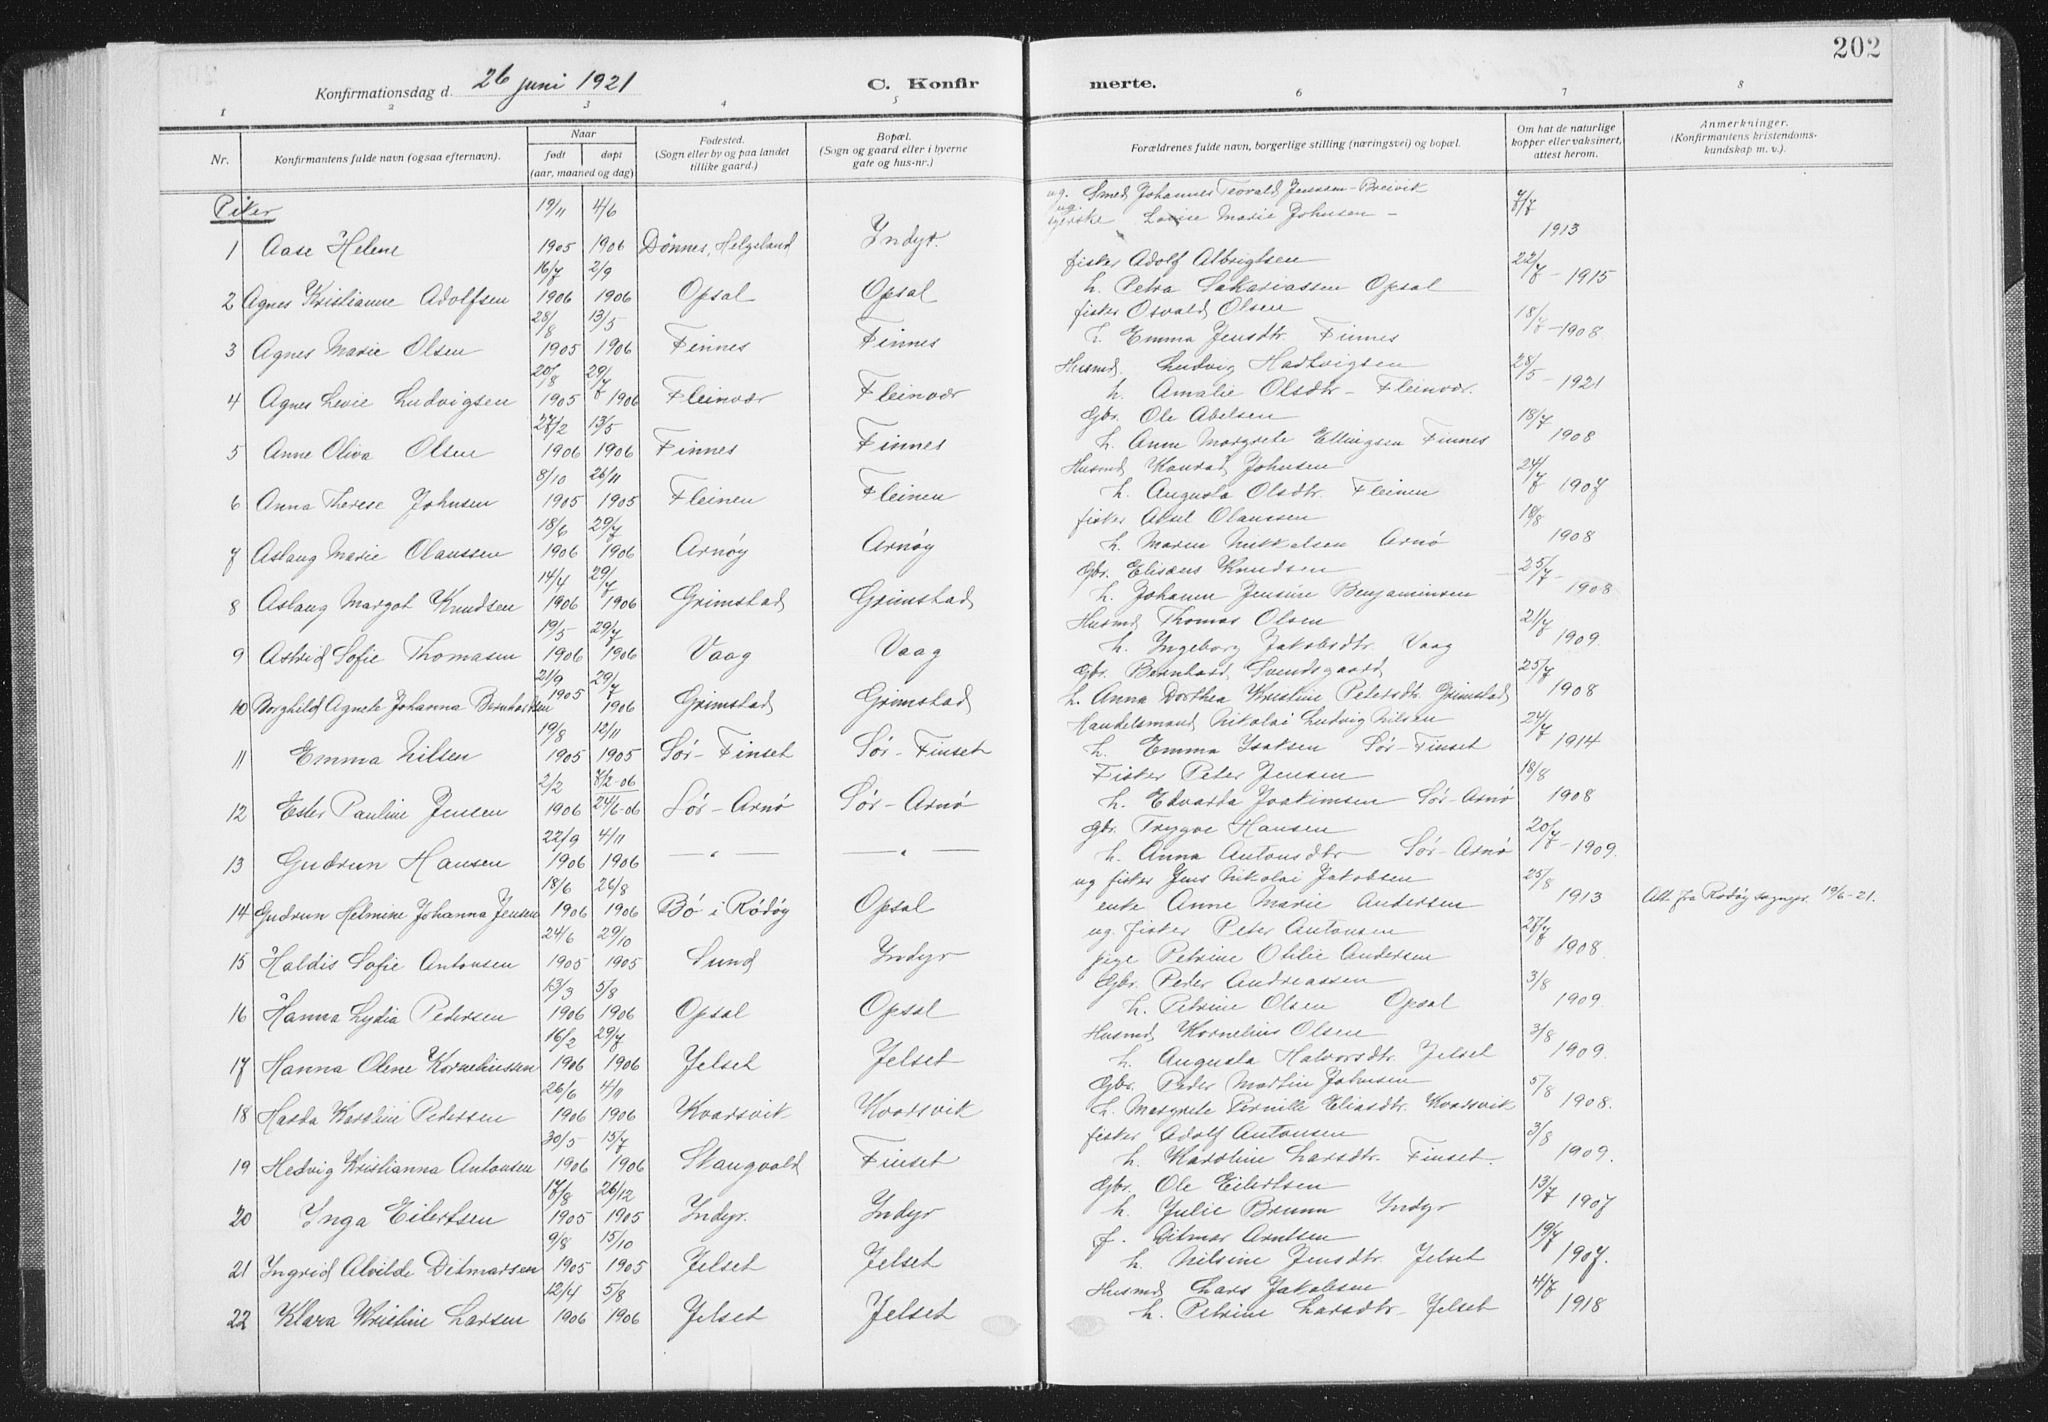 202
Konfirmationsdag d. 26 juni 1921 C. Konfirmerte.
1 2 3 4 5 6 7 8
Nr. Konfirmantens fulde navn (ogsaa efternavn). Naar født døpt (aar, maaned og dag) Fødested. (Sogn eller by og paa landet tillike gaard.) Bopæl. (Sogn og gaard eller i byerne gate og hus-nr.) Forældrenes fulde navn, borgerlige stilling (næringsvei) og bopæl. Om hat de naturlige kopper eller vaksinert, attest herom. Anmerkninger. (Konfirmantens kristendomskundskap m. v.)
Piker
1 Aase Helene 19/11 1905 4/6 1906 Dønnes, Helgeland Indyr. ug. Smed Johannes Teorald Jenssen - Breivik
ug. Marie Johnsen - 7/7 1913
2 Agnes Kristianne Adolfsen 16/7 1906 2/9 1906 Opsal Opsal fisker Adolf Albrigtsen
h. Petra Sakariassen Opsal 22/7 - 1915
3 Agnes Marie Olsen 28/8 1905 13/5 1906 Finnes Finnes fisker Osvald Olsen
h. Emma Jensdtr. Finnes 18/7 - 1908
4 Agnes Levie Ludvigsen 20/8 1905 29/7 1906 Fleinvær Fleinvær Husmd. Ludvig Hartvigsen
h. Amalie Olsdtr - Fleinvær. 28/5 - 1921
5 Anne Oliva Olsen 27/2 1906 13/5 1906 Finnes Finnes Gbr. Ole Abelsen
h. Anne Margrete Ellingsen Finnes 18/7 1908
6 Anna Therese Johnsen 8/10 1905 26/11 1905 Fleinen Fleinen Husmd Konrad Johnsen
h. Augusta Olsdtr. Fleinen 24/7 1907
7 Aslaug Marie Olaussen 18/6 1906 29/7 1906 Arnøy Arnøy fisker Aksel Olaussen
h. Maren Nikkelsen Arnø 18/8 1908
8 Aslaug Margot Knudsen 14/4 1906 29/7 1906 Grimstad Grimstad Gbr. Elisæus Knudsen
h. Johanne Jensine Benjaminsen 25/7 - 1908
9 Astrid Sofie Thomasen 19/5 1906 29/7 1906 Vaag Vaag Husmd Thomas Olsen
h. Ingeborg Jakobsdtr. Vaag 21/7 1909.
10 Borghild Agnete Johanna Bernhardsen 21/9 1905 29/7 1906 Grimstad Grimstad Gbr. Bernhard Svendsgaard
h. Anna Dorthea Kristine Petersdtr. Grimstad 25/7 1908
11 Emma Nilsen 19/8 1905 12/11 1905 Sør-Finset Sør-Finset Handelsmand Nikolai Ludvig Nilsen
h. Emma Isaksen Sør-Finset 24/7 1914
12 Ester Pauline Jensen 2/2 1906 7/2-06 24/6-06 Sør-Arnø Sør-Arnø Fisker Peter Jensen
h. Edvarda Joakimsen Sør-Arnø 18/8 1908
13 Gudrun Hansen 22/9 1906 4/11 1906 —"— —"— Gbr. Trygve Hansen
h. Anna Antonsdtr Sør-Arnø 20/7 - 1909.
14 Gudrun Helmine Johanna Jensen 18/6 1906 26/8 1906 Bø i Rødøy Opsal ug fisker Jens Nikolai Jakobsen
enke Anne Marie Andersen 25/8 1913 Att. fra Rødøy sognepr. 19/6-21.
15 Haldis Sofie Antonsen 24/6 1905 29/10 1905 Sund Indyr ug. fisker Peter Antonsen
pige Petrine Otilie Andersen 27/7 1908
16 Hanna Lydia Pedersen 13/3 1906 5/8 1906 Opsal Opsal Gbr. Peder Andreassen
h. Petrine Olsen Opsal 3/8 1909.
17 Hanna Olene Korneliussen 16/2 1906 29/7 1906 Jelset Jelset Husmd Kornelius Olsen
h. Augusta Halvorsdtr. Jelset 3/8 1909.
18 Harda Karoline Pedersen 26/6 1906 4/11 1906 Kvarsvik Kvarsvik Gbr. Peder Martin Johnsen
h. Margrete Pernille Eliasdtr. Kvarsvik 5/8 1908.
19 Hedvig Kristianna Antonsen 30/5 1906 15/7 1906 Skaugvold Finset fisker Adolf Antonsen
h. Karoline Larsdtr. Finset. 3/8 1909.
20 Inga Eilertsen 17/8 1905 26/12 1905 Indyr. Indyr Gbr. Ole Eilertsen
h. Julie Bruun Indyr 13/7 1907
21 Ingrid Alvilde Ditmarsen 9/8 1905 15/10 1905 Jelset Jelset f. Ditmar Arntsen
h. Nilsine Jensdtr. Jelset 19/7 1907.
22 Klara Kristine Larsen 12/4 1906 5/8 1906 Jelset Jelset Husmd Lars Jakobsen
h. Petrine Larsdtr - Jelset 4/7 1918